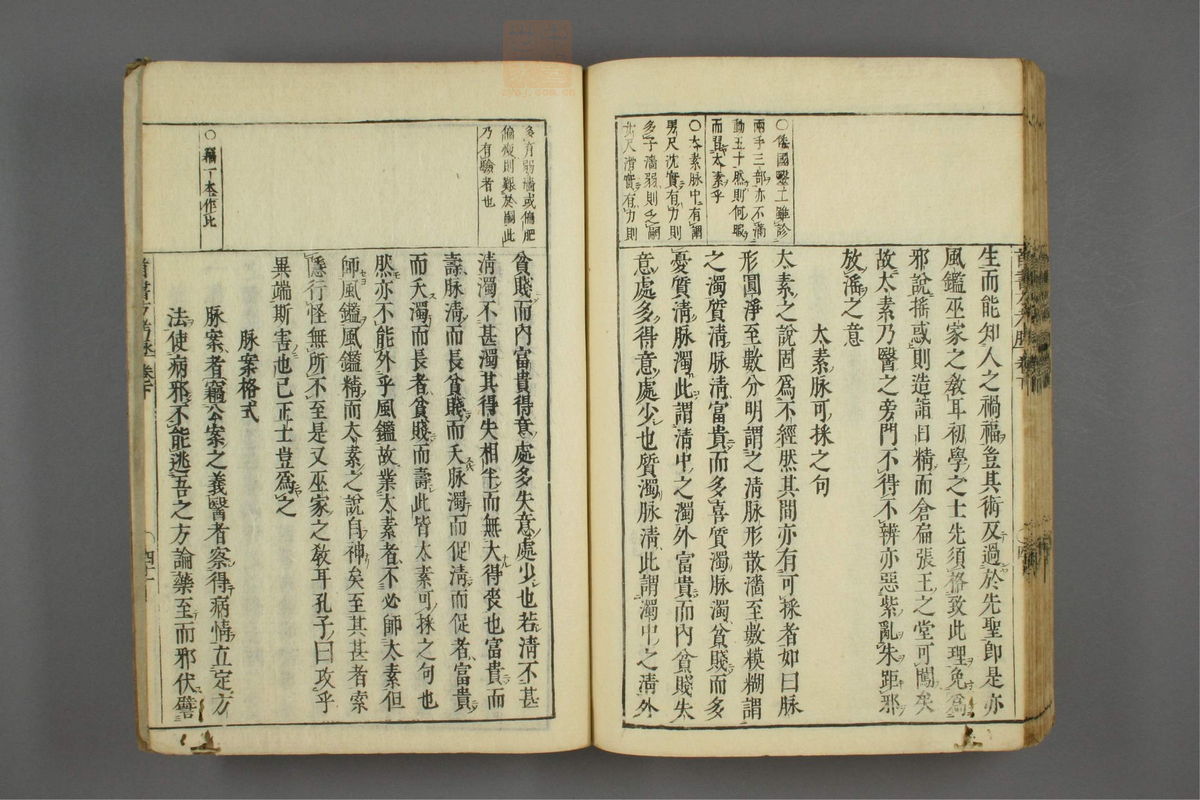 ○倭國醫工雖診
兩手三部亦不滿
動五十然則何暇
而〓太素乎
○太素脉中有謂
男尺沈實有力則
多子濇弱則乏嗣
女尺滑實有力則
生而能知人之禍福豈其術及過於先聖卽是亦
風鑑巫家之敎耳初學之士先須格致此理免爲
邪說搖惑則造詣日精而倉扁張王之堂可闖矣
故太素乃醫之旁門不得不辨亦惡紫亂朱距邪
放滛之意
太素脉可採之句
太素之說固爲不經然其間亦有可採者如曰脉
形圓淨至數分明謂之淸脉形散濇至數模糊謂
之濁質淸脉淸富貴而多喜質濁脉濁貧賤而多
憂質淸脉濁此謂淸中之濁外富貴而內貧賤失
意處多得意處少也質濁脉淸此謂濁中之淸外
多育弱濇或偏肥
偏瘦則艱於嗣此
乃有驗者也
○竊一本作比
貧賤而內富貴得意處多失意處少也若淸不甚
淸濁不甚濁其得失相半而無大得喪也富貴而
壽脉淸而長貧賤而夭脉濁而促淸而促者富貴
而夭濁而長者貧賤而壽此皆太素可採之句也
然亦不能外乎風鑑故業太素者不必師太素但
師風鑑風鑑精而太素之說自神矣至其甚者索
隱行怪無所不至是又巫家之敎耳孔子曰攻乎
異端斯害也已正士豈爲之
脉案格式
脉案者竊公案之義醫者察得病情立定方
法使病邪不能逃吾之方論藥至而邪伏譬